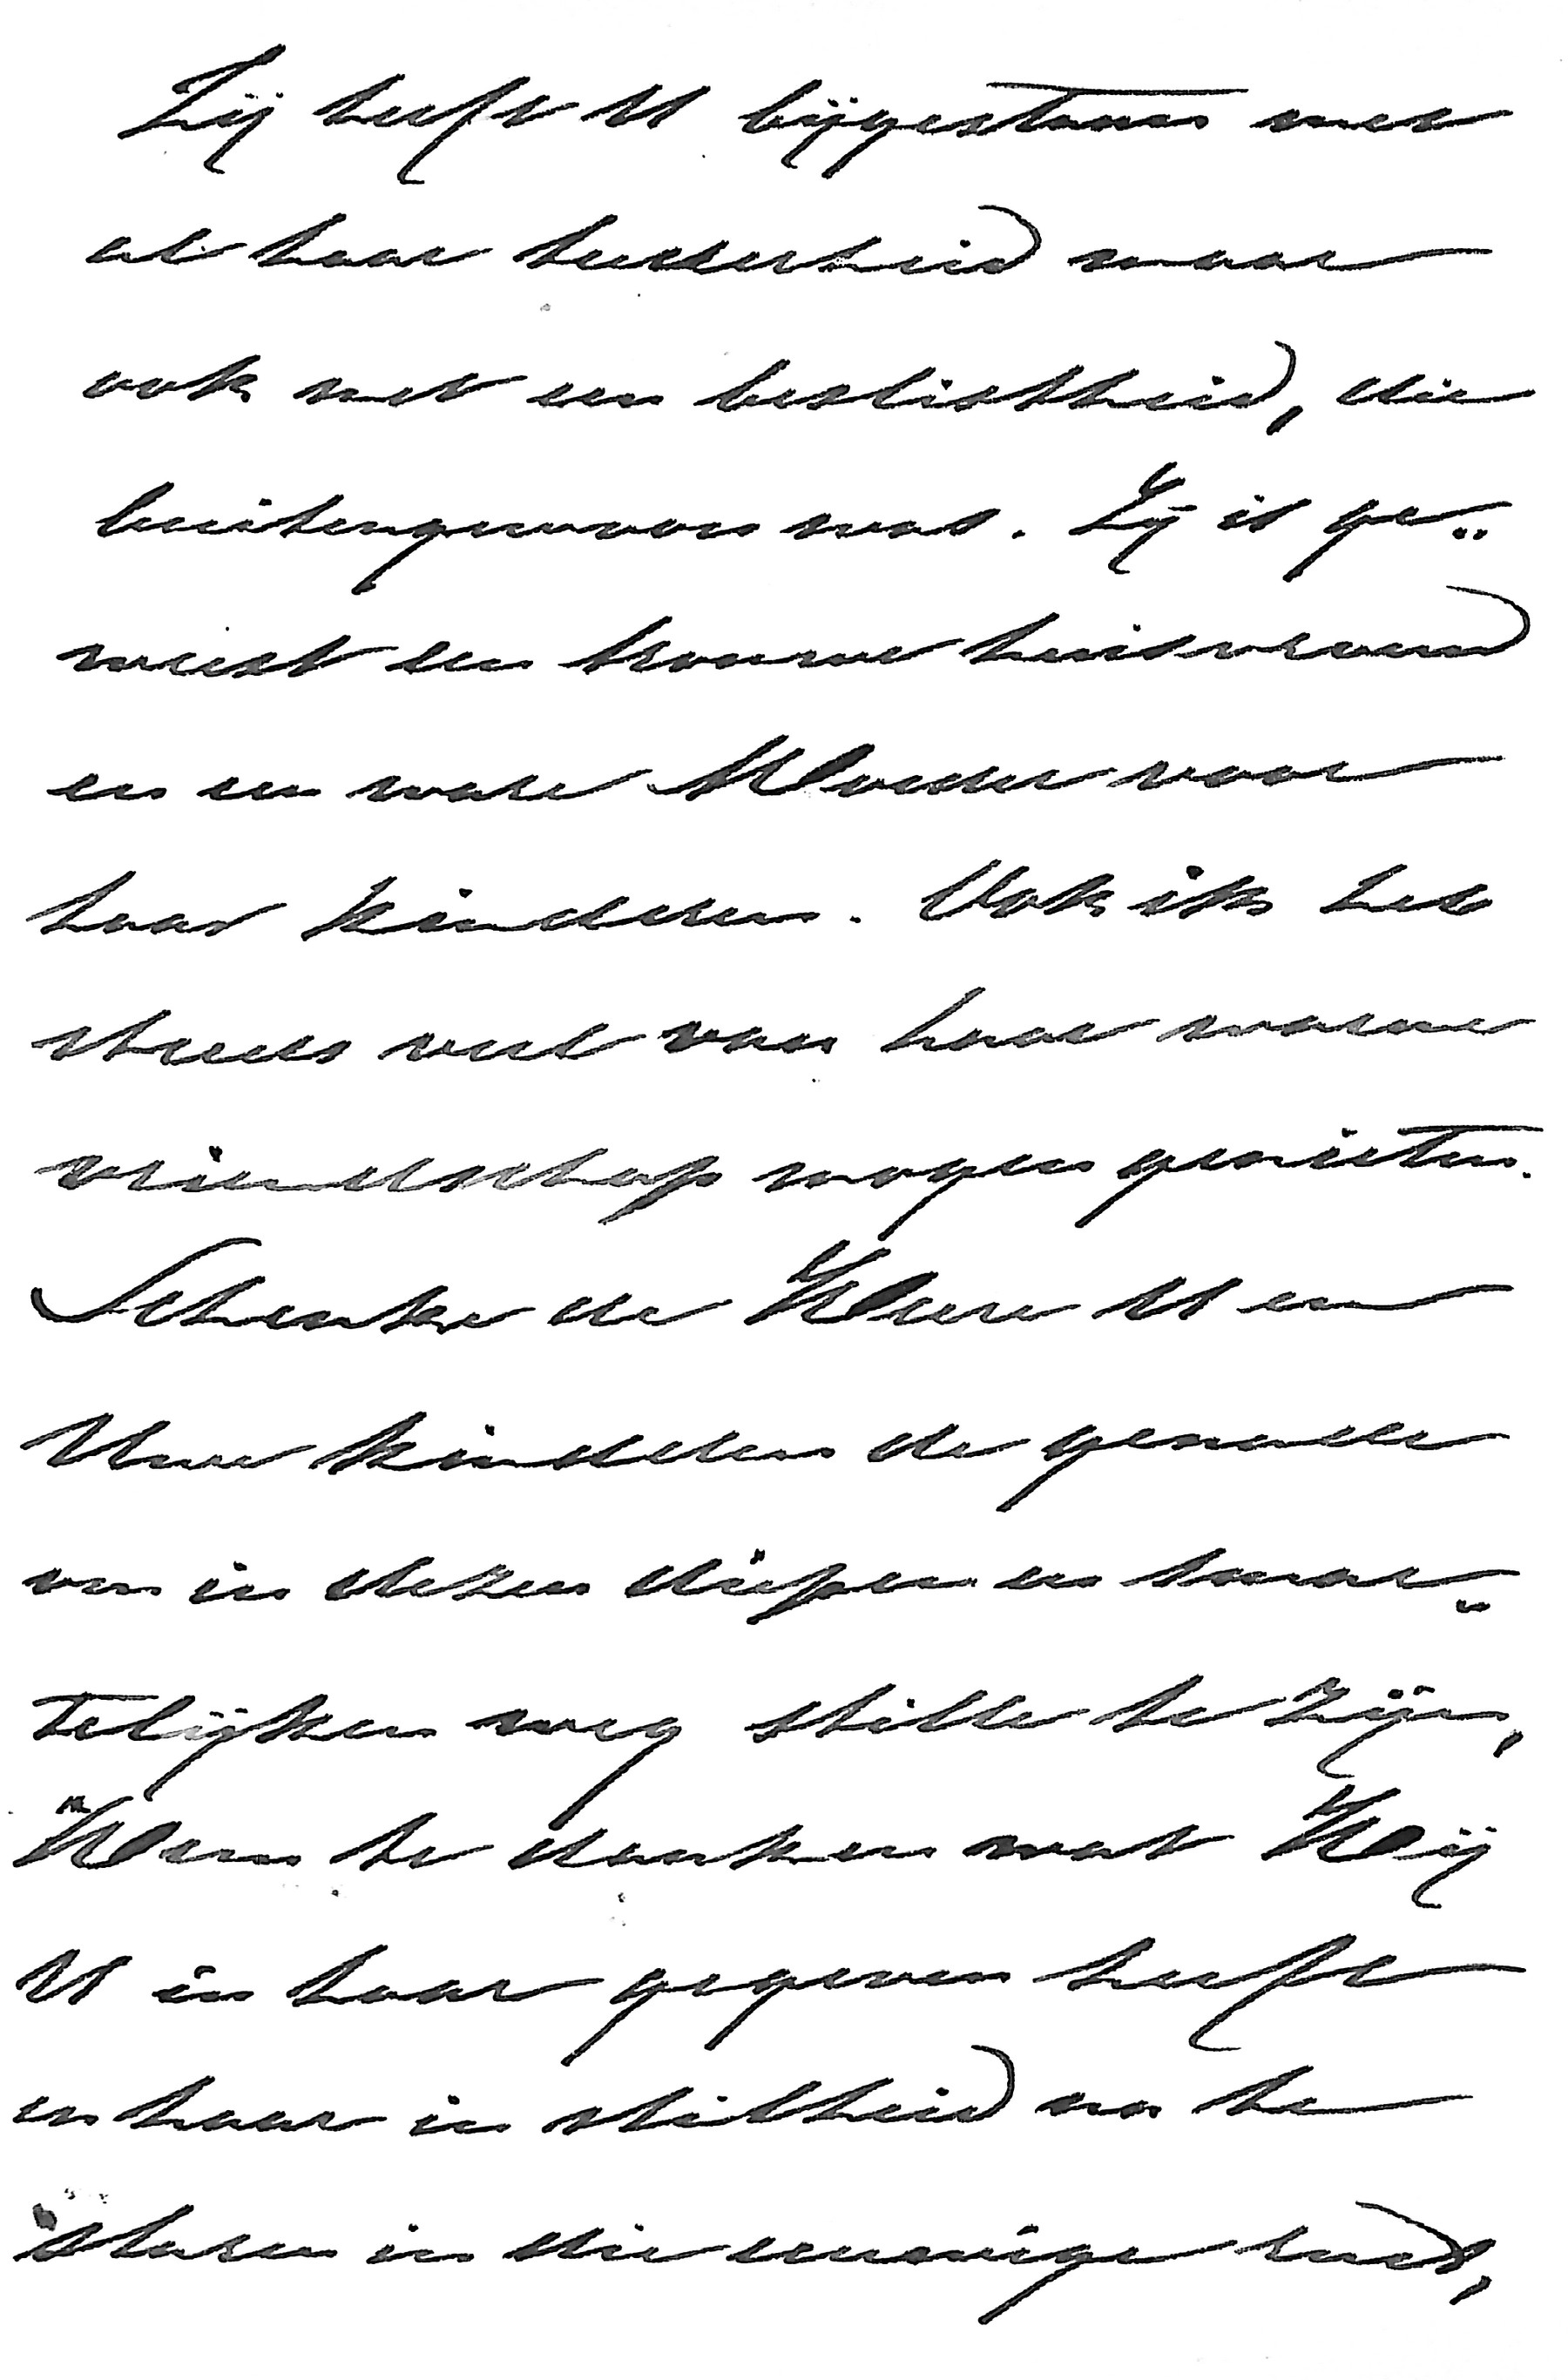 Zij heeft U bijgestaan met
al haar teederheid maar
ook met een beslistheid, die
buitengewoon was. Zij is ge„
weest een trouwe huisvrouw
en een ware Moeder voor
haar kinderen. Ook ik heb
steeds veel van haar warme
vriendschap mogen genieten.
Schenke de Heere U en
Uwe kinderen de genade
om in dezen diepen en smar„
telijken weg stille te zijn,
Hem te danken wat Hij
U in haar gegeven heeft
en haar in stilheid na te
staren in die eeuwige rust,